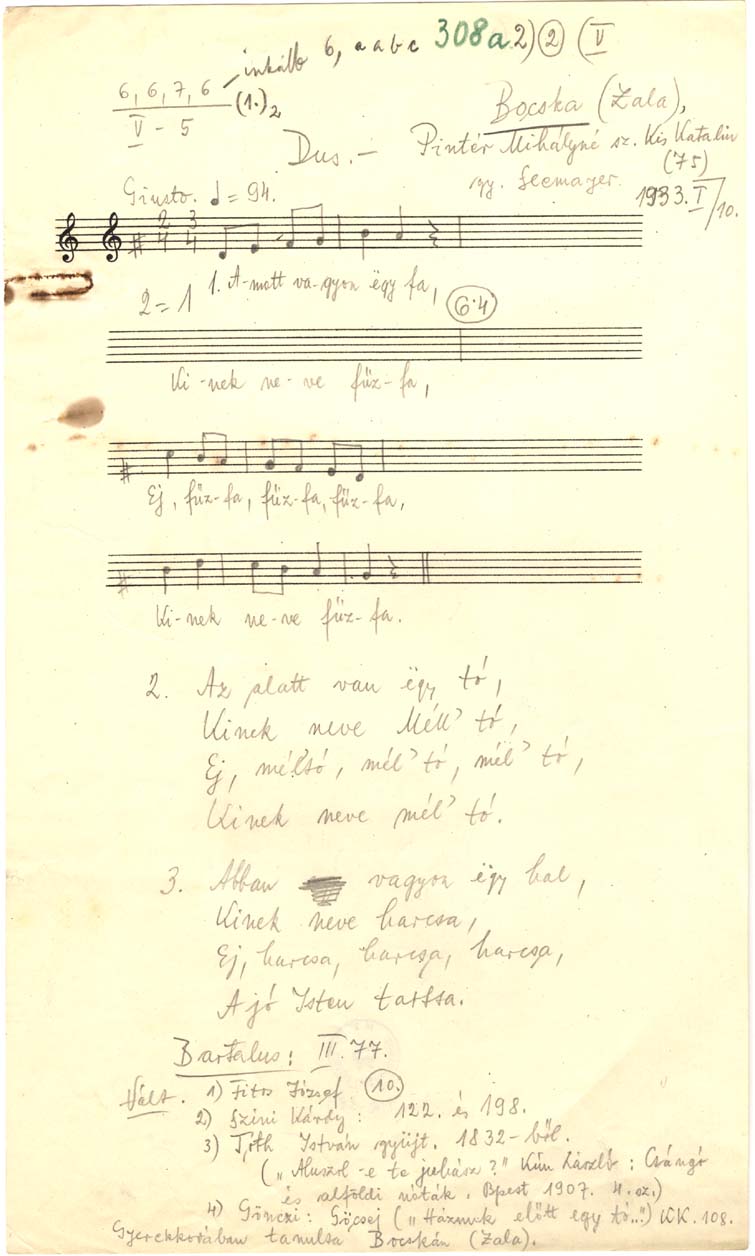 inkább 6, a a b c 308a 2) ② (V
6, 6, 7, 6 (1.)2
V - 5
Bocska (Zala),
Dus. — Pintér Mihályné sz. Kis Katalin
(75)
gy. Seemayer. 1933. I/10.
Giusto. = 94.
2 3
4 4
1. A-mott va-gyon ëgy fa,
2 = 1 6·4
Ki-nek ne-ve fűz-fa,
Ej, fűz-fa, fűz-fa, fűz-fa,
Ki-nek ne-ve fűz-fa.
2. Az alatt van ëgy tó,
Kinek neve Méll' tó,
Ej, mél'tó, mél' tó, mél' tó,
Kinek neve mél' tó.
3. Abban vagyon ëgy hal,
Kinek neve harcsa,
Ej, harcsa, harcsa, harcsa,
A jó Isten tartsa.
Bartalus: III. 77.
Vált. 1) Fitos József (10.)
2) Színi Károly: 122. és 198.
3) Tóth István gyűjt. 1832-ből.
("Aluszol-e te juhász?" Kún László: Csángó
és alföldi nóták. Bpest 1907. 4. sz.)
4) Gönczi: Göcsej ("Házunk előtt egy tó...") KK. 108.
Gyerekkorában tanulta Bocskán (Zala).